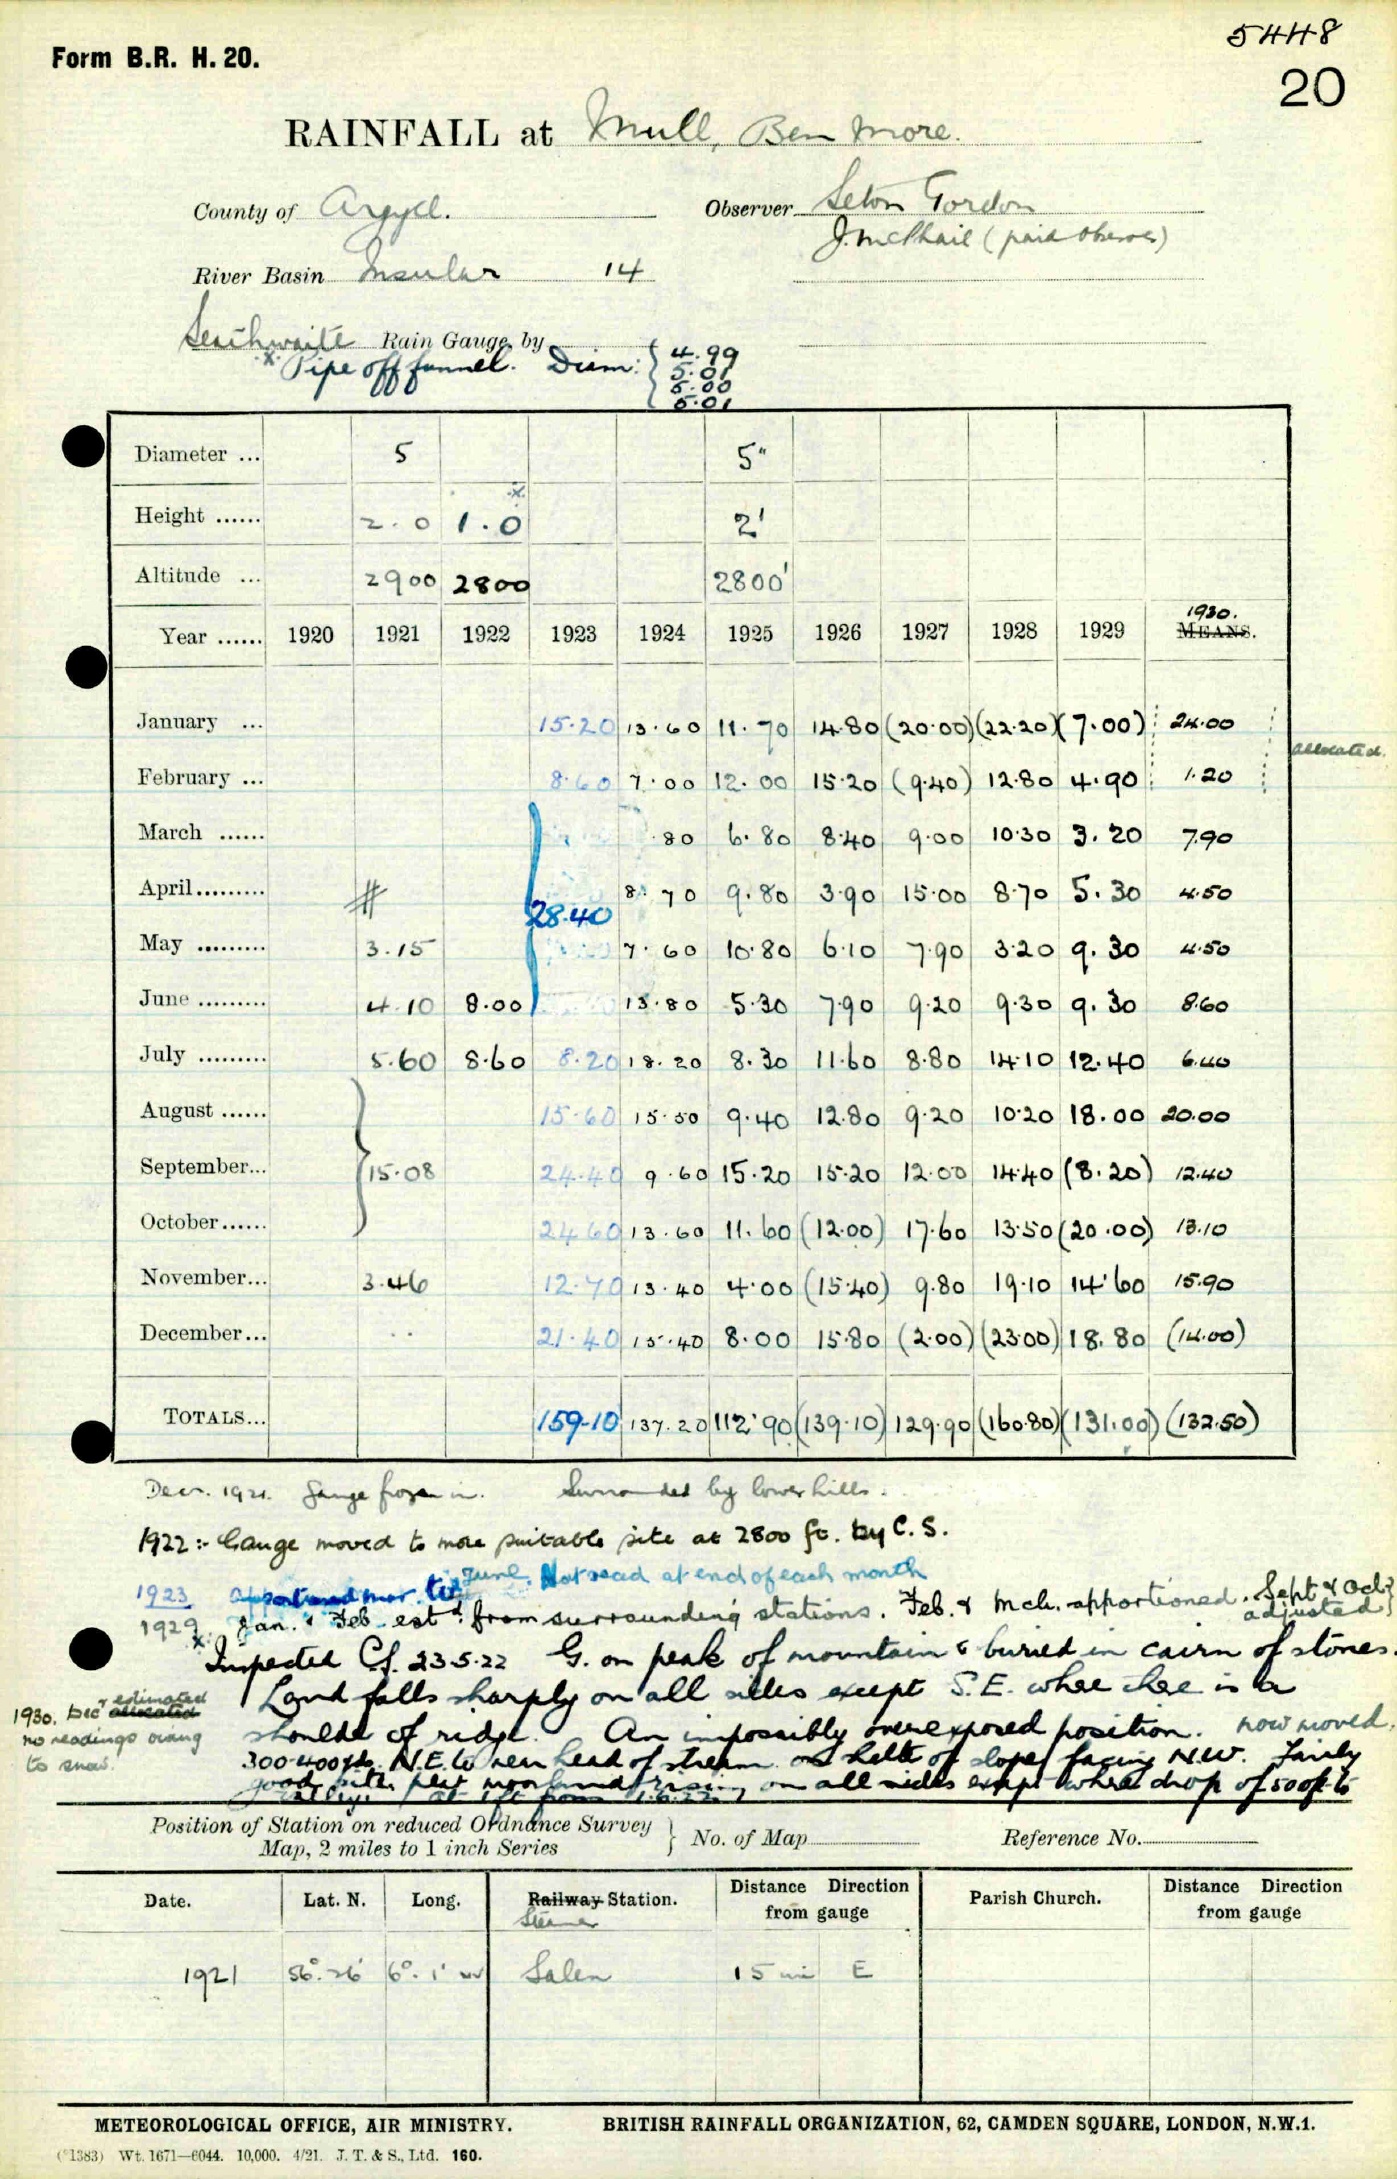 5448
Form B.R. H. 20.
20
RAINFALL at Mull, Ben More.
County of Argyll.
Observer Seton Gordon
J. McPhail (paid observer)
River Basin Insular 14
Seathwaite Rain Gauge by
x Pipe off funnel. Diam: { 4.99
5.01
5.00
5.01
Diameter ... 5 5"
x
Height ...... 2.0 1.0 2'
Altitude ... 2900 2800 2800'
1930.
Year ...... 1920 1921 1922 1923 1924 1925 1926 1927 1928 1929 MEANS.
January ... 15.20 13.60 11.70 14.80 (20.00) (22.20) (7.00) 24.00
allocated.
February ... 8.60 7.00 12.00 15.20 (9.40) 12.80 4.90 1.20
March ...... .80 6.80 8.40 9.00 10.30 3.20 7.90
April......... # 28.40 8.70 9.80 3.90 15.00 8.70 5.30 4.50
May ......... 3.15 7.60 10.80 6.10 7.90 3.20 9.30 4.50
June ......... 4.10 8.00 13.80 5.30 7.90 9.20 9.30 9.30 8.60
July ......... 5.60 8.60 8.20 18.20 8.30 11.60 8.80 14.10 12.40 6.40
August ...... 15.60 15.50 9.40 12.80 9.20 10.20 18.00 20.00
September... 15.08 24.40 9.60 15.20 15.20 12.00 14.40 (8.20) 12.40
October...... 24.60 13.60 11.60 (12.00) 17.60 13.50 (20.00) 13.10
November... 3.46 12.70 13.40 4.00 (15.40) 9.80 19.10 14.60 15.90
December... .. 21.40 15.40 8.00 15.80 (2.00) (23.00) 18.80 (14.00)
TOTALS... 159.10 137.20 112.90 (139.10) 129.90 (160.80) (131.00) (132.50)
Decr. 1921. Gauge frozen in. Surrounded by lower hills.
1922:- Gauge moved to more suitable site at 2800 ft. by C. S.
1923 apportioned mar. to June. Not read at end of each month
1929 Jan. & Feb. estd. from surrounding stations. Feb. & Mch. apportioned. Sept & Oct. adjusted}
x Inspected C.S. 23.5.22 G. on peak of mountain & buried in cairn of stones.
Land falls sharply on all sides except S.E. where there is a
1930. Dec estimated allocated
no readings owing
to snow.
shoulder of ridge. An impossibly overexposed position. now moved,
300-400 yds. N.E. to near head of stream on slope facing N.W. Fairly
good site, peat moorland rising on all sides except where drop of 500 ft to
valley. at 1 ft from 1.6.22
Position of Station on reduced Ordnance Survey
Map, 2 miles to 1 inch Series } No. of Map Reference No.
Date. Lat. N. Long. Railway Station. Distance from gauge Direction Parish Church. Distance from gauge Direction
Steamer
1921 56° 26' 6° 1' W Salen 15 mi E
METEOROLOGICAL OFFICE, AIR MINISTRY. BRITISH RAINFALL ORGANIZATION, 62, CAMDEN SQUARE, LONDON, N.W.1.
(*1383) Wt. 1671—6044. 10,000. 4/21. J. T. & S., Ltd. 160.